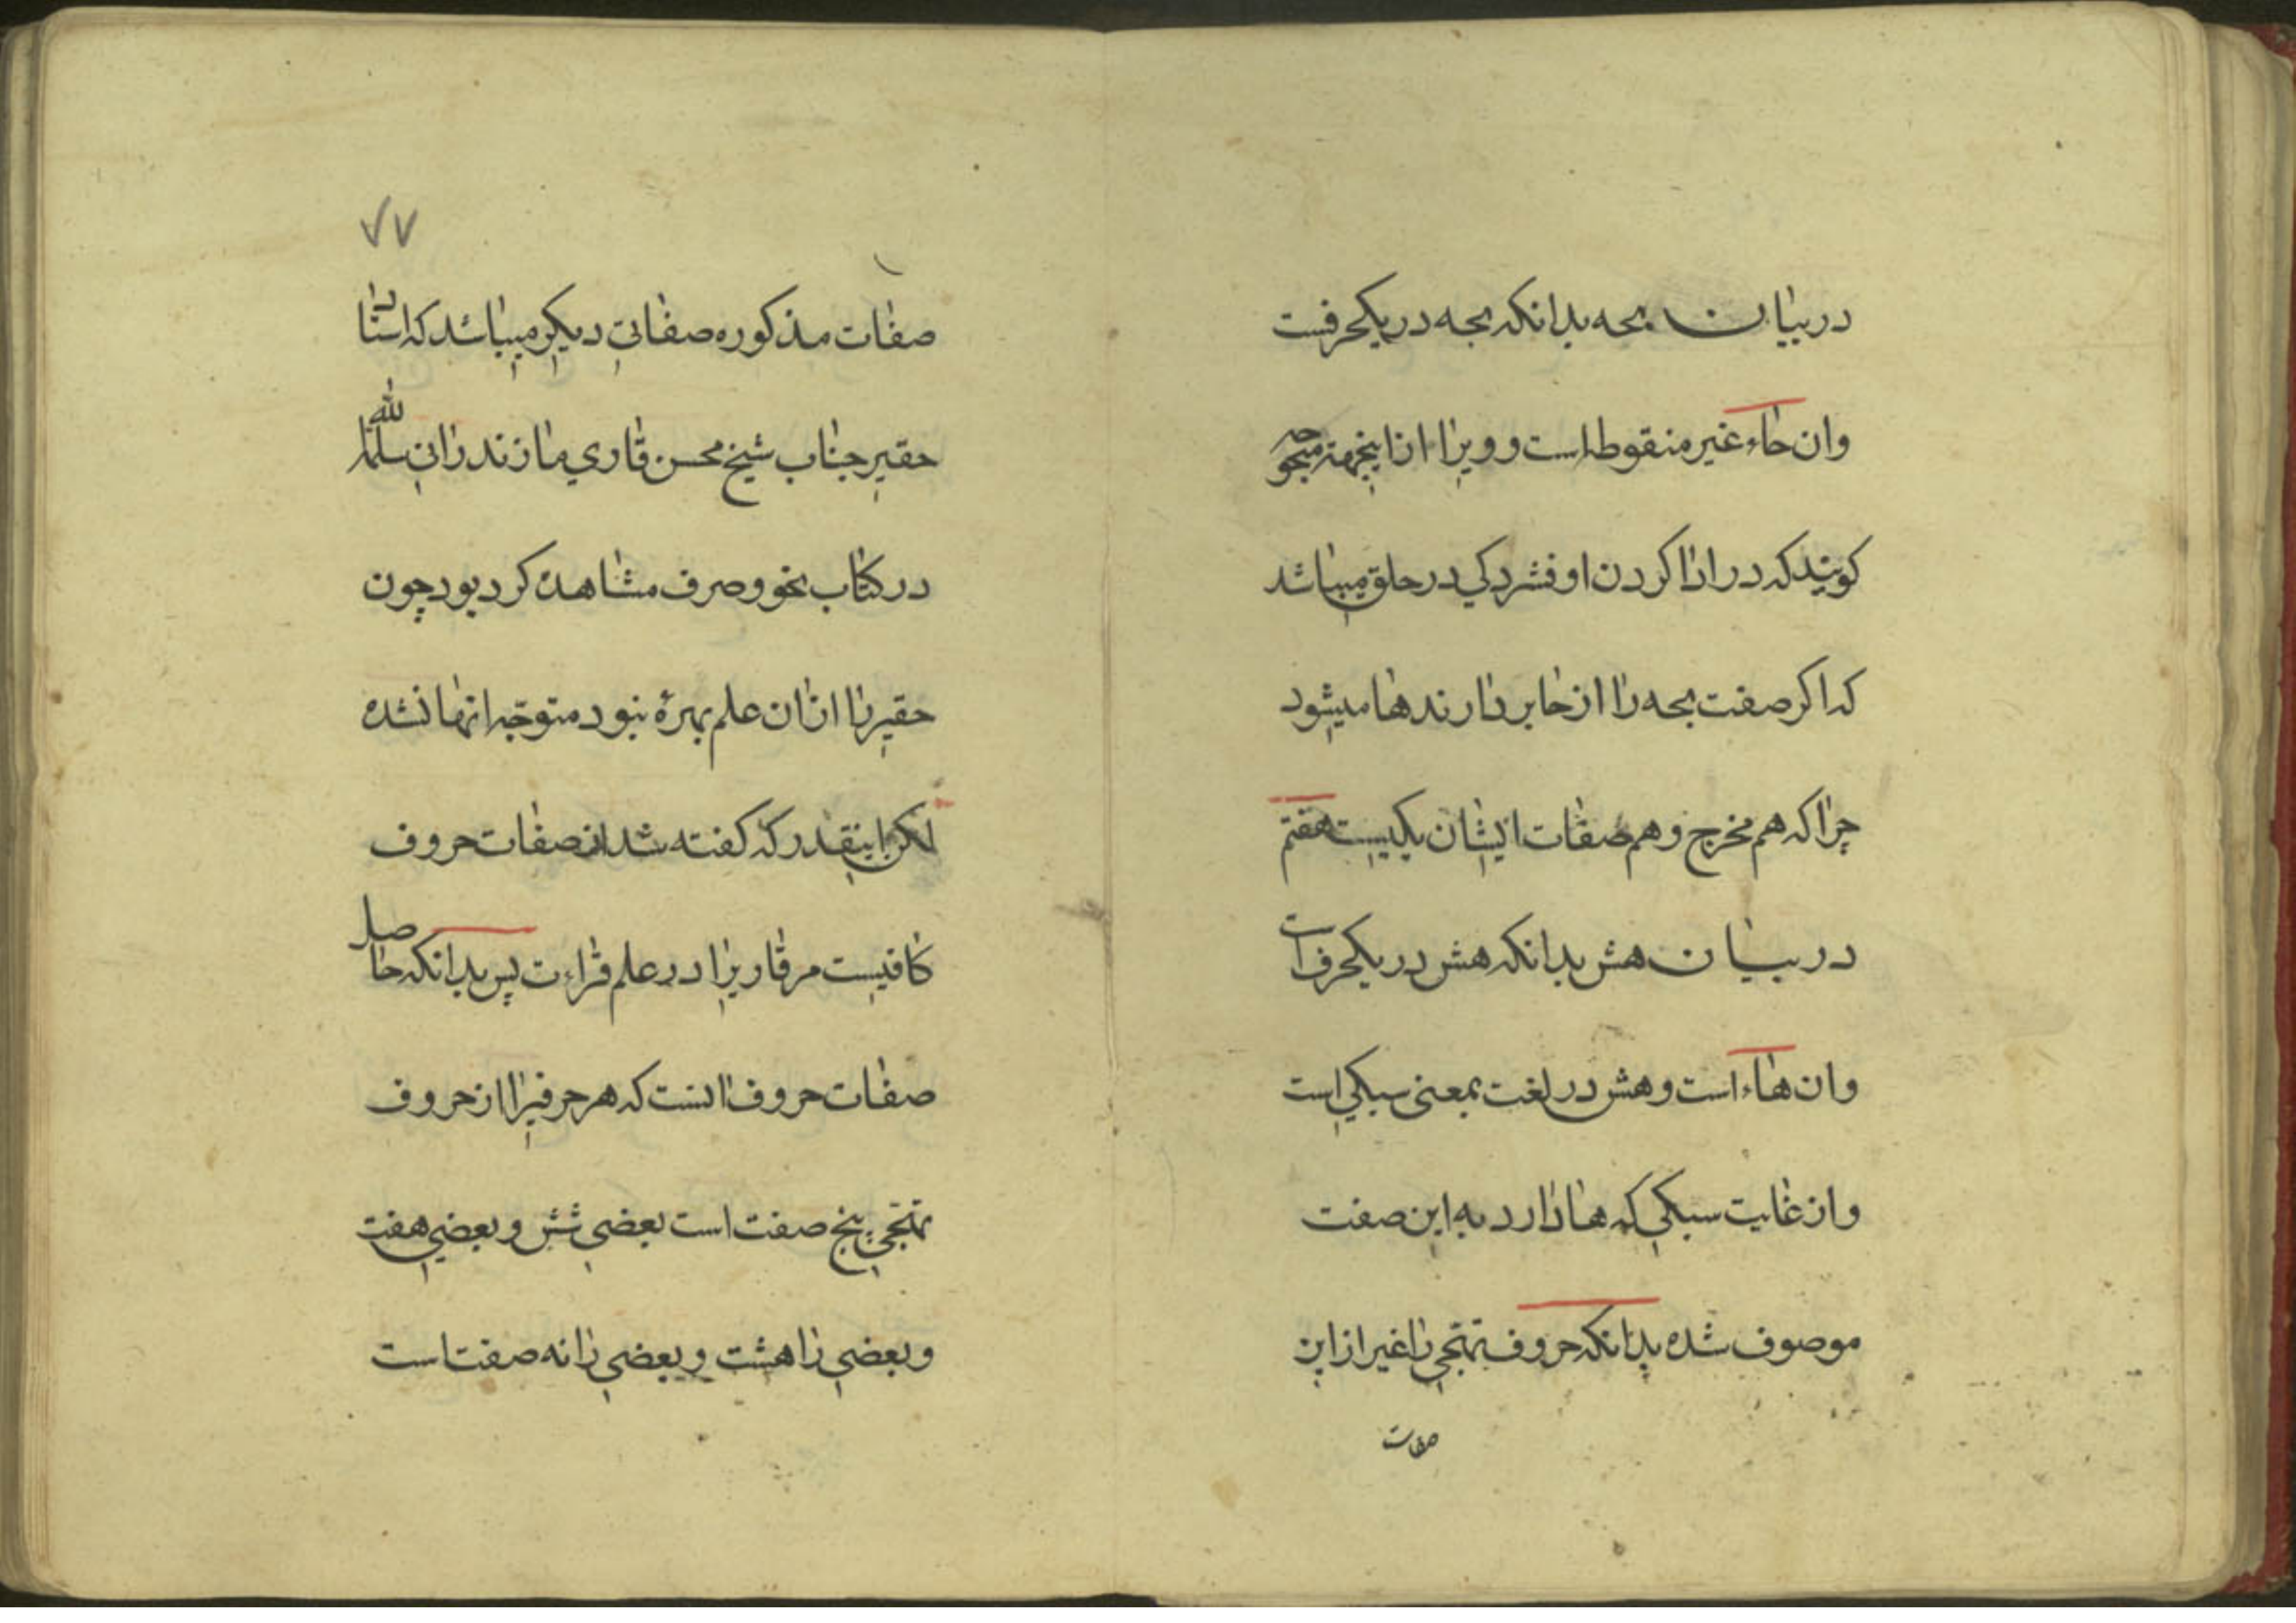 در بیان بحه بدانکه بحه در یکحرفست
وان حاء غیر منقوطه است و ویرا از اینجهة مبحوحه
کویند که در ادا کردن او فشردکی در حلق میباشد
که اکر صفت بحه را از حا بردارند ها میشود
چرا که هم مخرج و هم صفات ایشان یکیست هفتم
در بیان هش بدانکه هش در یکحرف است
وان هاء است و هش در لغت بمعنی سبکی است
و از غایت سبکی که ها دارد به این صفت
موصوف شده بدانکه حروف تهجی را غیر از این
صفات
۷۷
صفات مذکوره صفاتی دیکر میباشد که استاد
حقیر جناب شیخ محسن قاری مازندرانی سلمه الله
در کتاب نحو و صرف مشاهده کرد بود چون
حقیر را از ان علم بهرهٔ نبود متوجه انها نشده
لکن اینقدر که کفته شد از صفات حروف
کافیست مر قاریرا در علم قراءت پس بدانکه حاصل
صفات حروف انست که هر حرفیرا از حروف
تهجی پنج صفت است بعضی شش و بعضی هفت
و بعضی را هشت و بعضی را نه صفت است